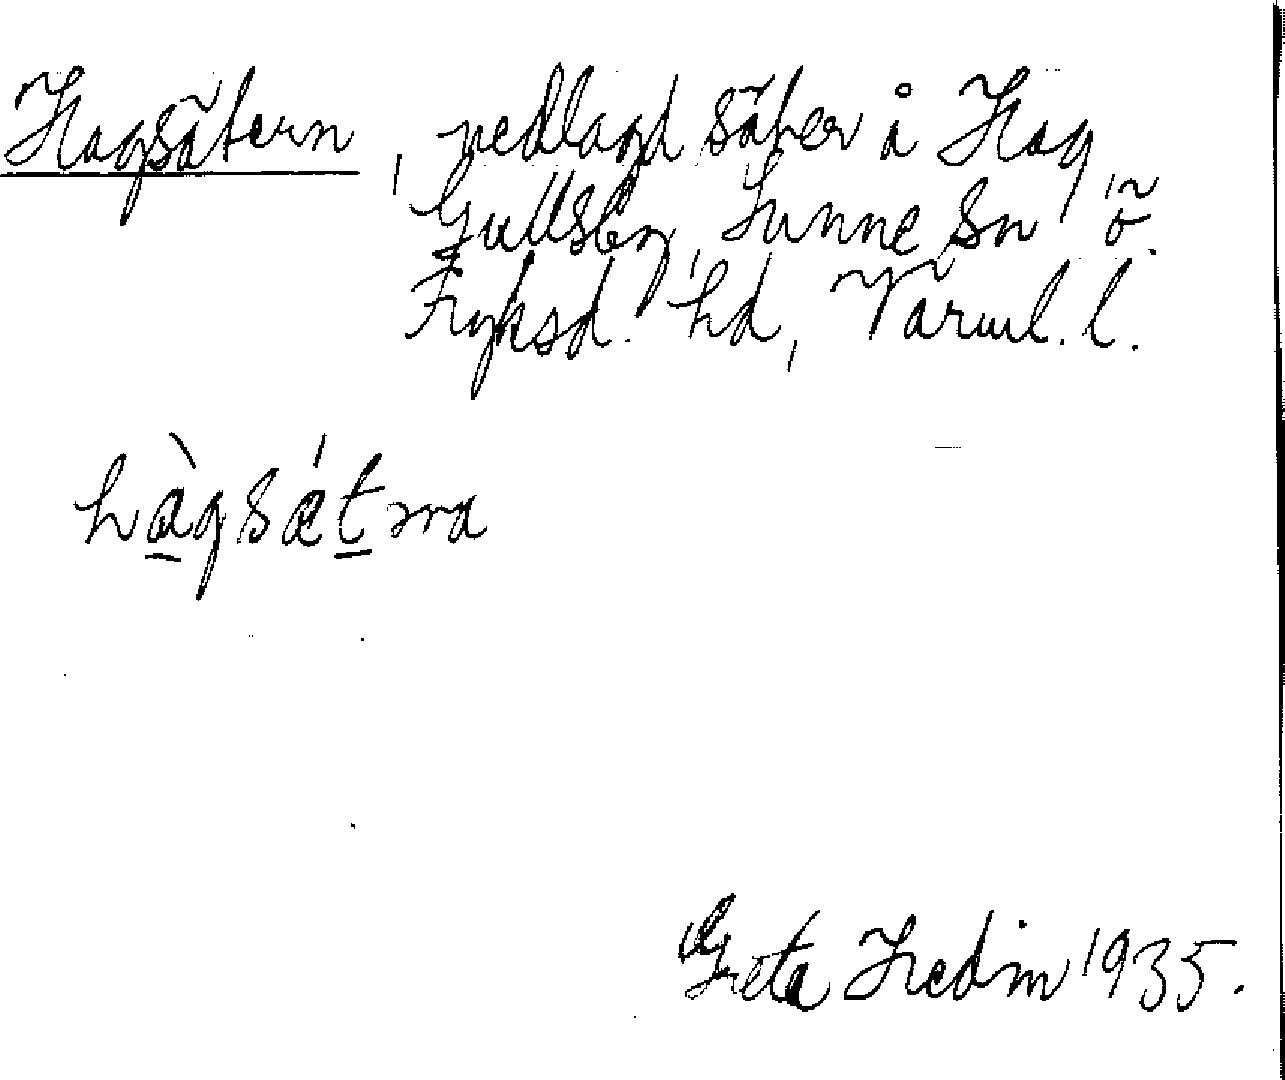 Hagsätern, nedlagd säter å Hag,
Gullsby, Sunne sn, Ö.
Fryksd. hd, Värml. l.
hàgsǽtəra
Greta Hedin 1935.